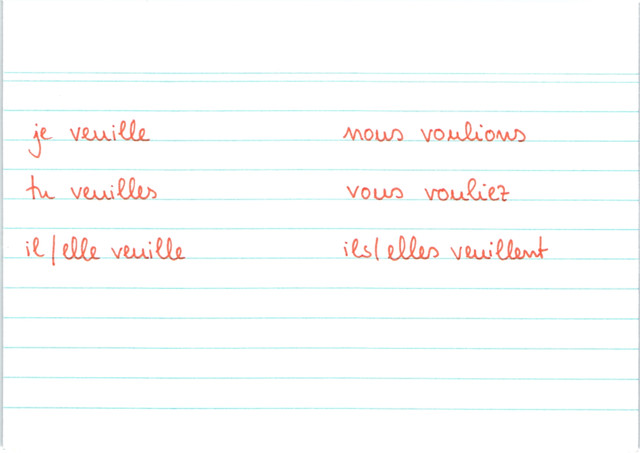 je veuille nous voulions
tu veuilles vous vouliez
il/elle veuille ils/elles veuillent